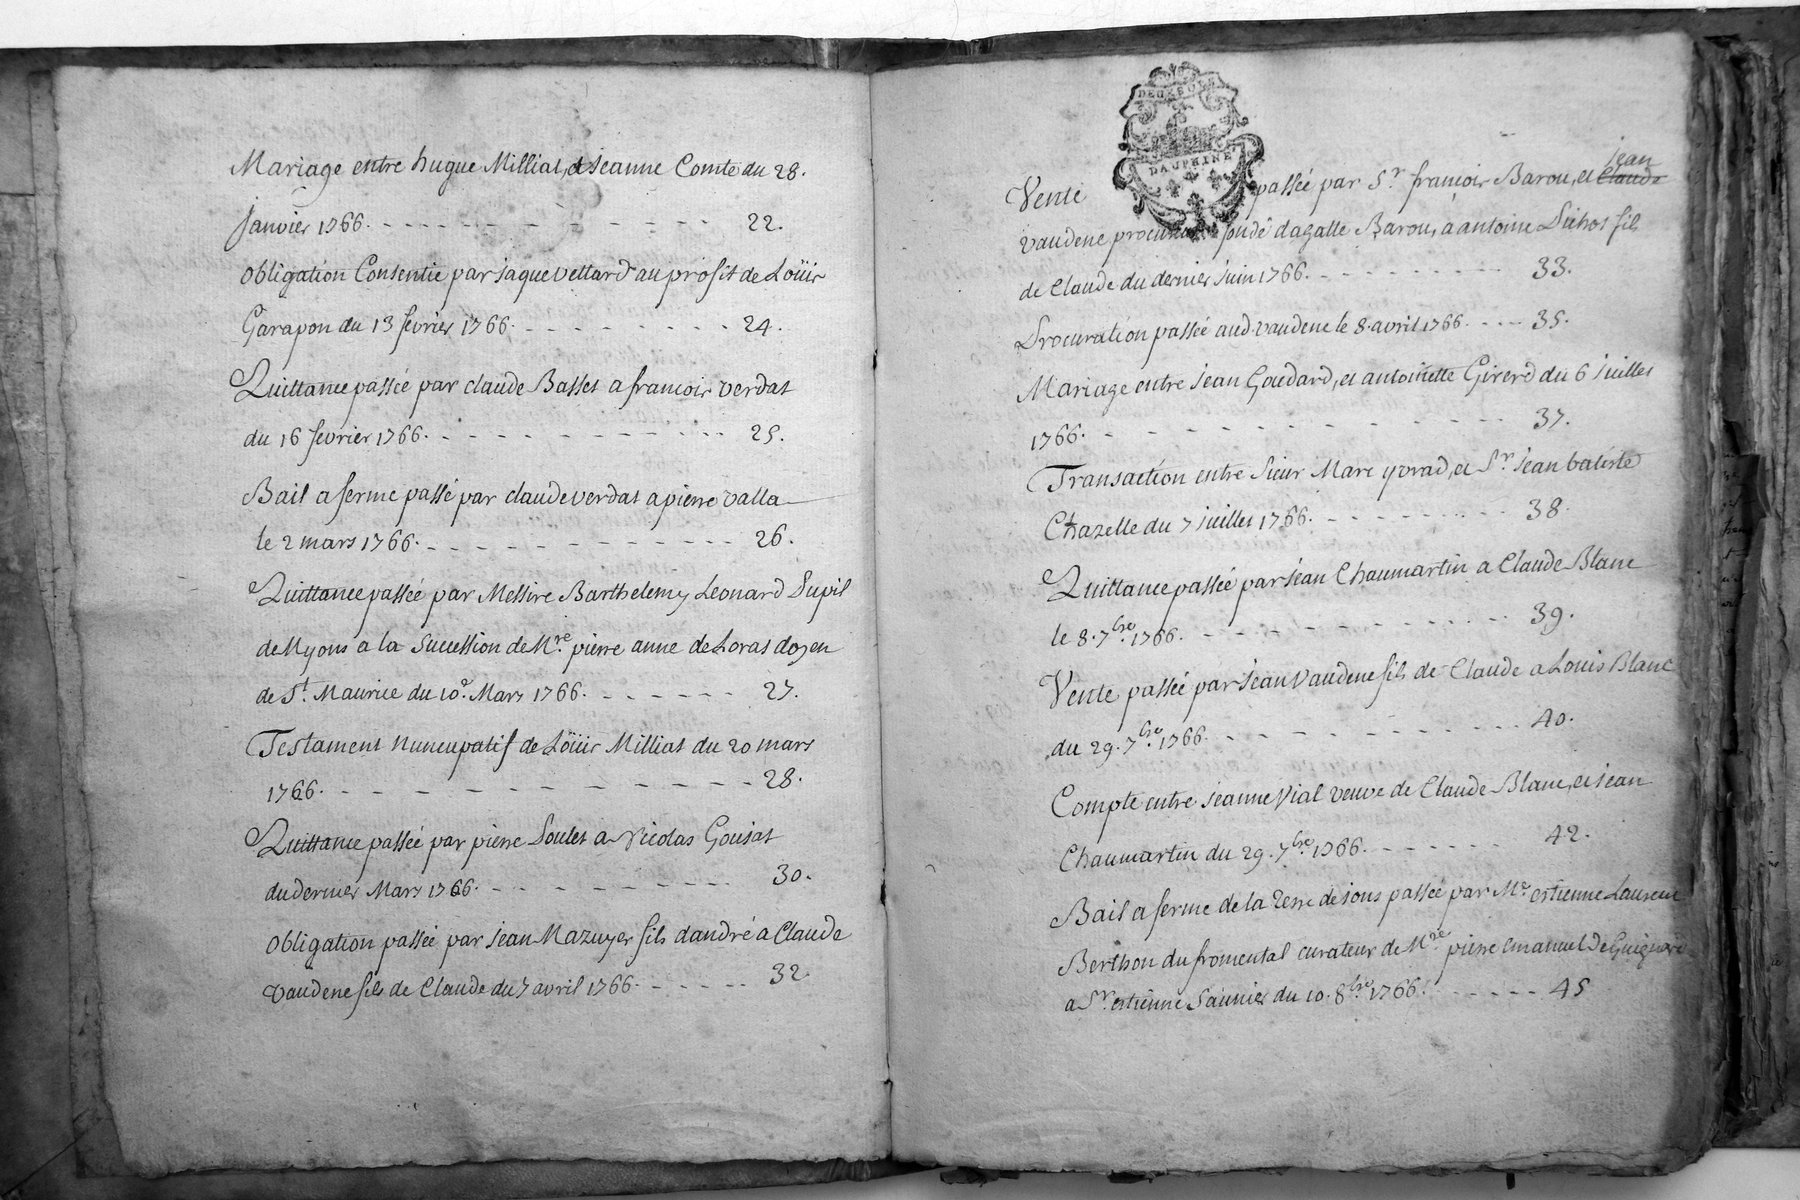 Mariage entre hugue Milliat, et Jeanne Comte du 28.
janvier 1766. - - - - - - - - - - 22.
obligation Consentie par jaque vettard au profit de Loüis
Garapon du 13 fevrier 1766. - - - - - - - - 24.
Quittance passée par claude Basset a francois verdat
du 16 fevrier 1766. - - - - - - - - - - 25.
Bail a ferme passé par claude verdat a pierre valla
le 2 mars 1766. - - - - - - - - - - 26.
Quittance passée par Messire Barthelemy Leonard Pupil
de Myons a la Succession de Mre. pierre anne de Loras doyen
de St. Maurice du 10e. Mars 1766. - - - - - - 27.
Testament Nuncupatif de Loüis Milliat du 20 mars
1766. - - - - - - - - - - - 28.
Quittance passée par pierre Poulet a Nicolas Goujat
du dernier Mars 1766. - - - - - - - - 30.
obligation passée par jean Mazuyer fils dandré a Claude
Vaudene fils de Claude du 7 avril 1766. - - - - - - 32.
DEUX SOLS
DAUPHINÉ
jean
Vente passée par Sr. francois Barou, et Claude
Vaudene fondé dagathe Barou, a antoine Pichot fils
de Claude du dernier juin 1766. - - - - - - - - 33.
Procuration passée aud. vaudene le 8. avril 1766. - - - 35.
Mariage entre jean Goudard, et antoinette Girerd du 6 juillet
1766. - - - - - - - - - - - 37.
Transaction entre Sieur Marc yvrad, et Sr. jean batiste
Chazelle du 7 juillet 1766. - - - - - - - - 38.
Quittance passée par jean Chaumartin a Claude Blanc
le 8. 7bre. 1766. - - - - - - - - - - 39.
Vente passée par jean Vaudene fils de Claude a Louis Blanc
du 29. 7bre. 1766. - - - - - - - - - - 40.
Compte entre jeanne Vial veuve de Claude Blanc, et jean
Chaumartin du 29. 7bre. 1766. - - - - - - 42.
Bail a ferme de la Terre de jons passée par Me. estienne Laurent
Berthon du fromental curateur de Mre. pierre emanuel De Guignard
a Sr. estienne Saunier du 10. 8bre. 1766. - - - - - - 45